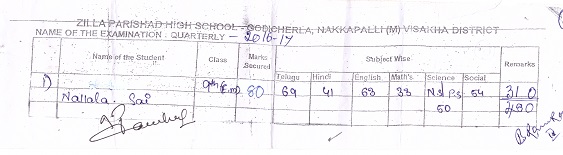 ZILLA PARISHAD HIGH SCHOOL - GODICHERLA, NAKKAPALLI (M) VISAKHA DISTRICT
NAME OF THE EXAMINATION - QUARTERLY - 2016-17
Name of the Student Class Marks Secured Subject Wise Remarks
Telugu Hindi English Math's Science Social
1) Nallala. Sai 9th E.m 80 69 41 63 33 N.S P.S 54 310
50 480